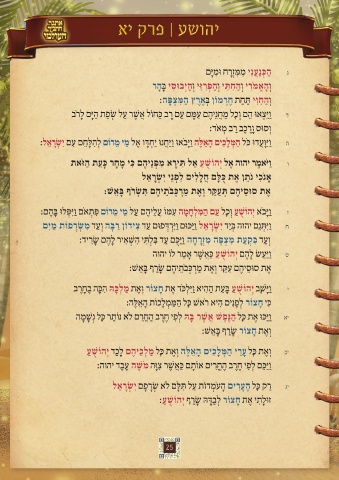 אתגר
חידון
העולמי
יהושע | פרק יא
ג הַכְּנַעֲנִי מִמִּזְרָח וּמִיָּם
וְהָאֱמֹרִי וְהַחִתִּי וְהַפְּרִזִּי וְהַיְבוּסִי בָּהָר
וְהַחִוִּי תַּחַת חֶרְמוֹן בְּאֶרֶץ הַמִּצְפָּה:
ד וַיֵּצְאוּ הֵם וְכָל מַחֲנֵיהֶם עִמָּם עַם רָב כַּחוֹל אֲשֶׁר עַל שְׂפַת הַיָּם לָרֹב
וְסוּס וָרֶכֶב רַב מְאֹד:
ה וַיִּוָּעֲדוּ כֹּל הַמְּלָכִים הָאֵלֶּה וַיָּבֹאוּ וַיַּחֲנוּ יַחְדָּו אֶל מֵי מֵרוֹם לְהִלָּחֵם עִם יִשְׂרָאֵל:
ו וַיֹּאמֶר יהוה אֶל יְהוֹשֻׁעַ אַל תִּירָא מִפְּנֵיהֶם כִּי מָחָר כָּעֵת הַזֹּאת
אָנֹכִי נֹתֵן אֶת כֻּלָּם חֲלָלִים לִפְנֵי יִשְׂרָאֵל
אֶת סוּסֵיהֶם תְּעַקֵּר וְאֶת מַרְכְּבֹתֵיהֶם תִּשְׂרֹף בָּאֵשׁ:
ז וַיָּבֹא יְהוֹשֻׁעַ וְכָל עַם הַמִּלְחָמָה עִמּוֹ עֲלֵיהֶם עַל מֵי מֵרוֹם פִּתְאֹם וַיִּפְּלוּ בָּהֶם:
ח וַיִּתְּנֵם יהוה בְּיַד יִשְׂרָאֵל וַיַּכּוּם וַיִּרְדְּפוּם עַד צִידוֹן רַבָּה וְעַד מִשְׂרְפוֹת מַיִם
וְעַד בִּקְעַת מִצְפֶּה מִזְרָחָה וַיַּכֻּם עַד בִּלְתִּי הִשְׁאִיר לָהֶם שָׂרִיד:
ט וַיַּעַשׂ לָהֶם יְהוֹשֻׁעַ כַּאֲשֶׁר אָמַר לוֹ יהוה
אֶת סוּסֵיהֶם עִקֵּר וְאֶת מַרְכְּבֹתֵיהֶם שָׂרַף בָּאֵשׁ:
י וַיָּשָׁב יְהוֹשֻׁעַ בָּעֵת הַהִיא וַיִּלְכֹּד אֶת חָצוֹר וְאֶת מַלְכָּהּ הִכָּה בֶחָרֶב
כִּי חָצוֹר לְפָנִים הִיא רֹאשׁ כָּל הַמַּמְלָכוֹת הָאֵלֶּה:
יא וַיַּכּוּ אֶת כָּל הַנֶּפֶשׁ אֲשֶׁר בָּהּ לְפִי חֶרֶב הַחֲרֵם לֹא נוֹתַר כָּל נְשָׁמָה
וְאֶת חָצוֹר שָׂרַף בָּאֵשׁ:
יב וְאֶת כָּל עָרֵי הַמְּלָכִים הָאֵלֶּה וְאֶת כָּל מַלְכֵיהֶם לָכַד יְהוֹשֻׁעַ
וַיַּכֵּם לְפִי חֶרֶב הֶחֱרִים אוֹתָם כַּאֲשֶׁר צִוָּה מֹשֶׁה עֶבֶד יהוה:
יג רַק כָּל הֶעָרִים הָעֹמְדוֹת עַל תִּלָּם לֹא שְׂרָפָם יִשְׂרָאֵל
זוּלָתִי אֶת חָצוֹר לְבַדָּהּ שָׂרַף יְהוֹשֻׁעַ:
25